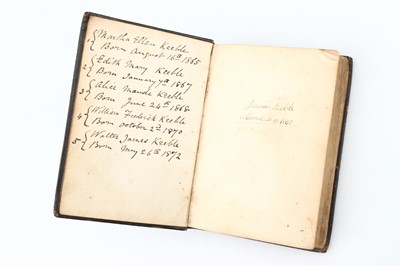 1 { Martha Ellen Keeble
Born August 16th 1865
2 { Edith Mary Keeble
Born January 7th 1867
3 { Alice Maude Keeble
Born June 24th 1868
4 { William Frederick Keeble
Born October 2nd 1870
5 { Walter James Keeble
Born May 26th 1872
Keeble